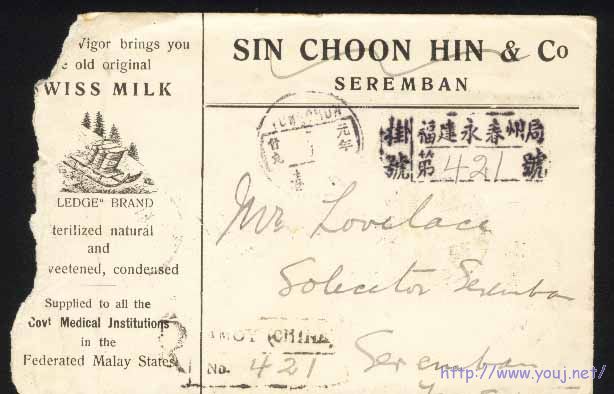 Vigor brings you
old original
WISS MILK
LEDGE" BRAND
terilized natural
and
veetened, condensed
Supplied to all the
Govt Medical Institutions
in the
Federated Malay States
SIN CHOON HIN & Co
SEREMBAN
元年
掛號
福建永春州局
第 421 號
Mr Lovelace
Solicitor Seremban
Seremban
AMOY (CHINA)
No. 421
http://www.youj.net/